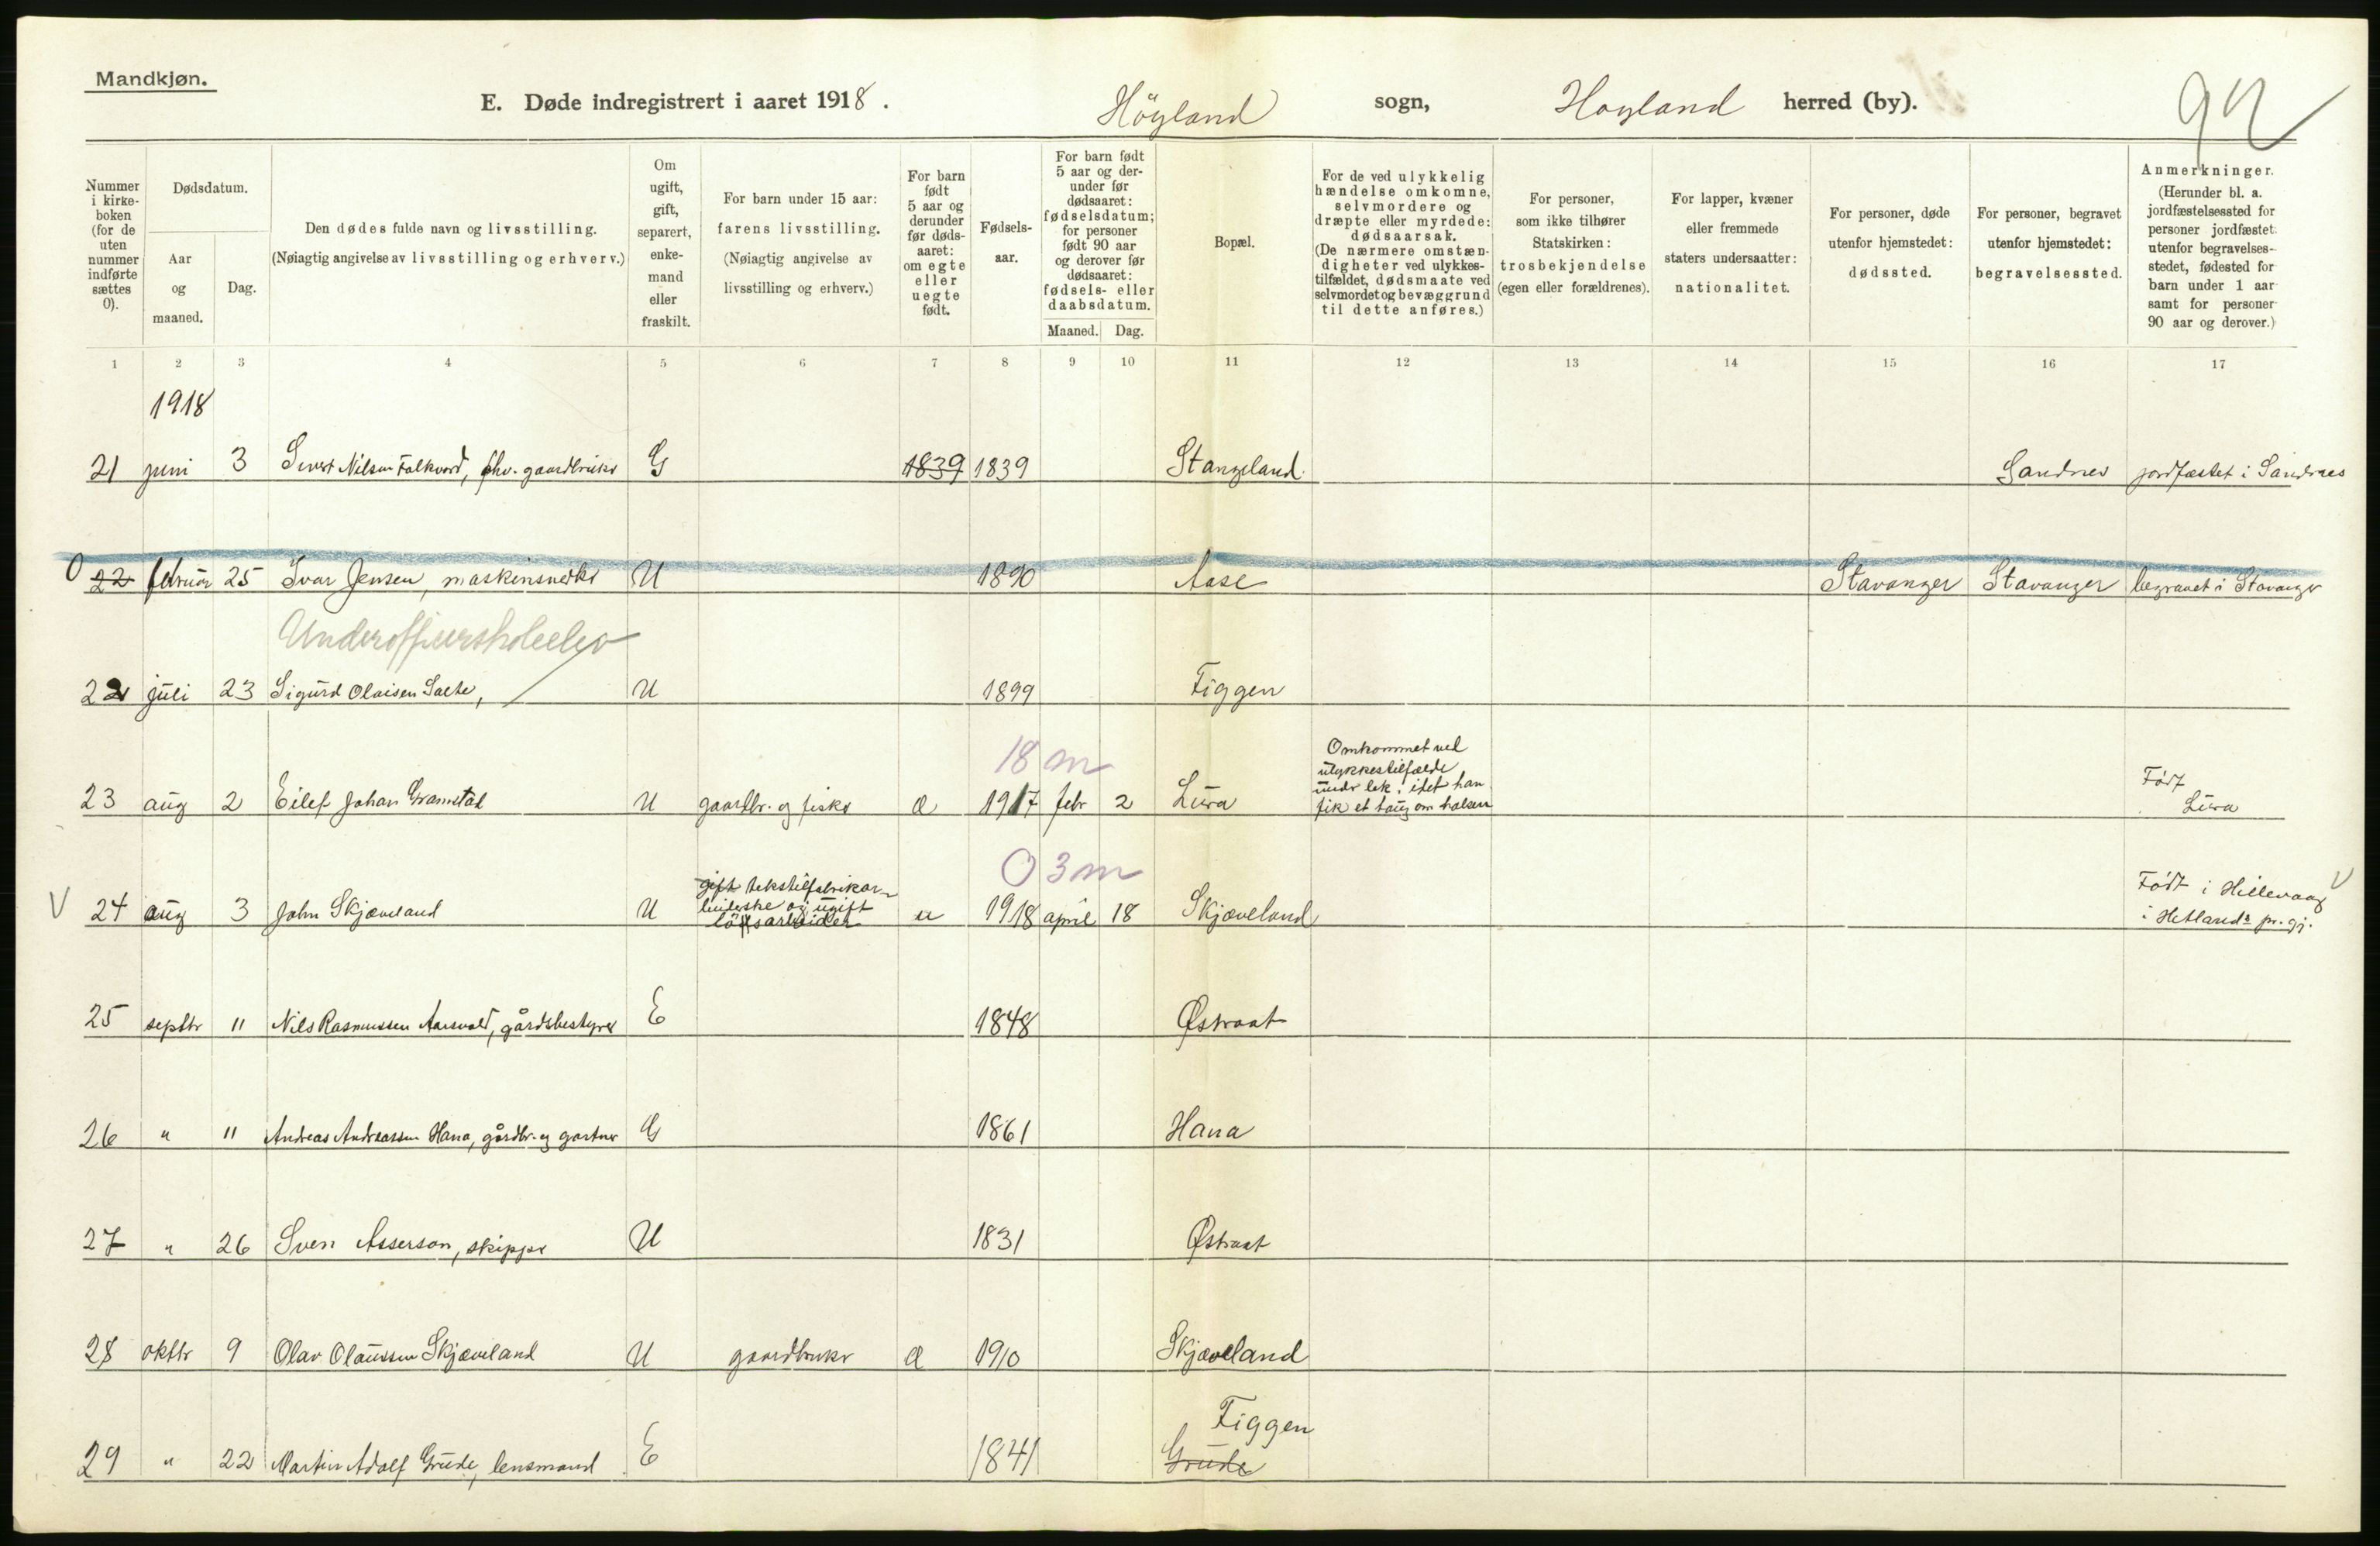 Mandkjøn.
E. Døde indregistrert i aaret 1918. Höyland sogn, Hoyland herred (by). 92
Nummer i kirke-boken (for de uten nummer indførte sættes 0).
Dødsdatum.
Aar og maaned.
Dag.
Den dødes fulde navn og livsstilling.
(Nøiagtig angivelse av livsstilling og erhverv.)
Om ugift, gift, separert, enke-mand eller fraskilt.
For barn under 15 aar:
farens livsstilling.
(Nøiagtig angivelse av livsstilling og erhverv.)
For barn født 5 aar og derunder før døds-aaret: om egte eller uegte født.
Fødsels-aar.
For barn født 5 aar og der-under før dødsaaret: fødselsdatum; for personer født 90 aar og derover før dødsaaret: fødsels- eller daabsdatum.
Maaned. Dag.
Bopæl.
For de ved ulykkelig hændelse omkomne, selvmordere og dræpte eller myrdede: dødsaarsak.
(De nærmere omstæn-digheter ved ulykkes-tilfældet, dødsmaate ved selvmordet og bevæggrund til dette anføres.)
For personer, som ikke tilhører Statskirken: trosbekjendelse (egen eller forældrenes).
For lapper, kvæner eller fremmede staters undersaatter: nationalitet.
For personer, døde utenfor hjemstedet: dødssted.
For personer, begravet utenfor hjemstedet: begravelsessted.
Anmerkninger.
(Herunder bl. a. jordfæstelsessted for personer jordfæstet utenfor begravelses-stedet, fødested for barn under 1 aar samt for personer 90 aar og derover.)
1 2 3 4 5 6 7 8 9 10 11 12 13 14 15 16 17
1918
21 juni 3 Sivert Nilsen Folkvord, fhv. gaardbruker G 1839 1839 Stangeland Sandnes jordfæstet i Sandnes
0 22 februar 25 Ivar Jensen, maskinsnedker U 1890 Aase Stavanger Stavanger begravet i Stavanger
Underofficersskoleelev
22 juli 23 Sigurd Olaisen Salte, U 1899 Figgen
18 m
23 aug 2 Eilef Johan Gramstad U gaardbr. og fisker æ 1917 febr 2 Lura Omkommet ved ulykkestilfælde under lek, idet han fik et taug om halsen Født Lura
0 3 m
V 24 aug 3 John Skjæveland U gift tekstilfabrikar-beiderske og ugift løsarbeider u 1918 april 18 Skjæveland Født i Hillevaag i Hetlands pr.gj. V
25 septbr 11 Nils Rasmussen Aarsvold, gårdsbestyrer E 1848 Østraat
26 " 11 Andreas Andreassen Hana, gårdbr. og gartner G 1861 Hana
27 " 26 Sven Asserson, skipper U 1831 Østraat
28 oktbr 9 Olav Olaussen Skjæveland U gaardbruker æ 1910 Skjæveland
Figgen
29 " 22 Martin Adolf Grude, lensmand E 1841 Grude